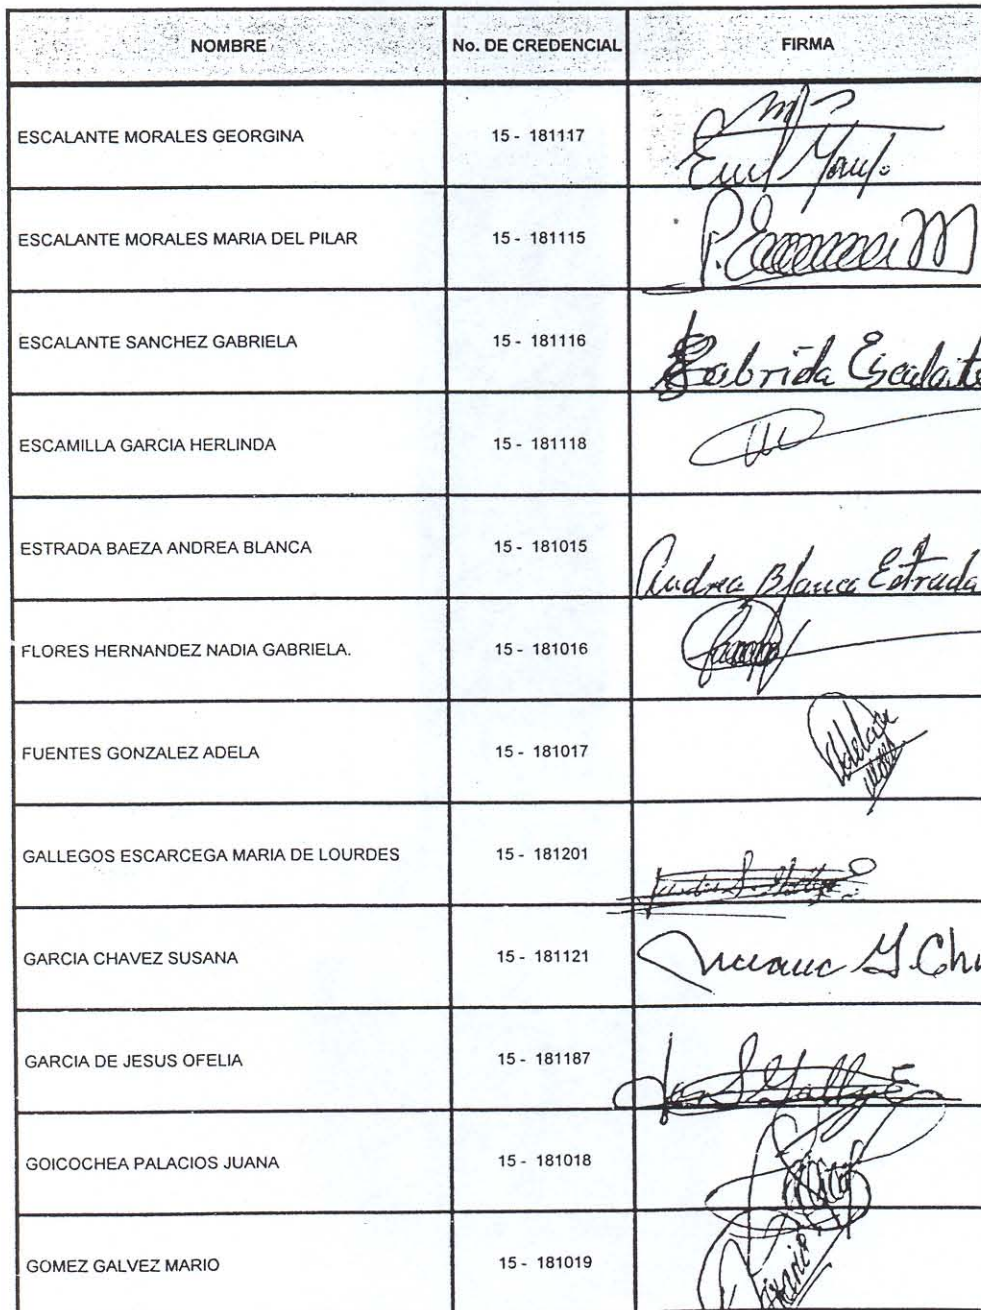 NOMBRE No. DE CREDENCIAL FIRMA
ESCALANTE MORALES GEORGINA 15 - 181117
ESCALANTE MORALES MARIA DEL PILAR 15 - 181115
ESCALANTE SANCHEZ GABRIELA 15 - 181116 Gabriela Escalante
ESCAMILLA GARCIA HERLINDA 15 - 181118
ESTRADA BAEZA ANDREA BLANCA 15 - 181015 Andrea Blanca Estrada
FLORES HERNANDEZ NADIA GABRIELA. 15 - 181016
FUENTES GONZALEZ ADELA 15 - 181017
GALLEGOS ESCARCEGA MARIA DE LOURDES 15 - 181201
GARCIA CHAVEZ SUSANA 15 - 181121
GARCIA DE JESUS OFELIA 15 - 181187
GOICOCHEA PALACIOS JUANA 15 - 181018
GOMEZ GALVEZ MARIO 15 - 181019